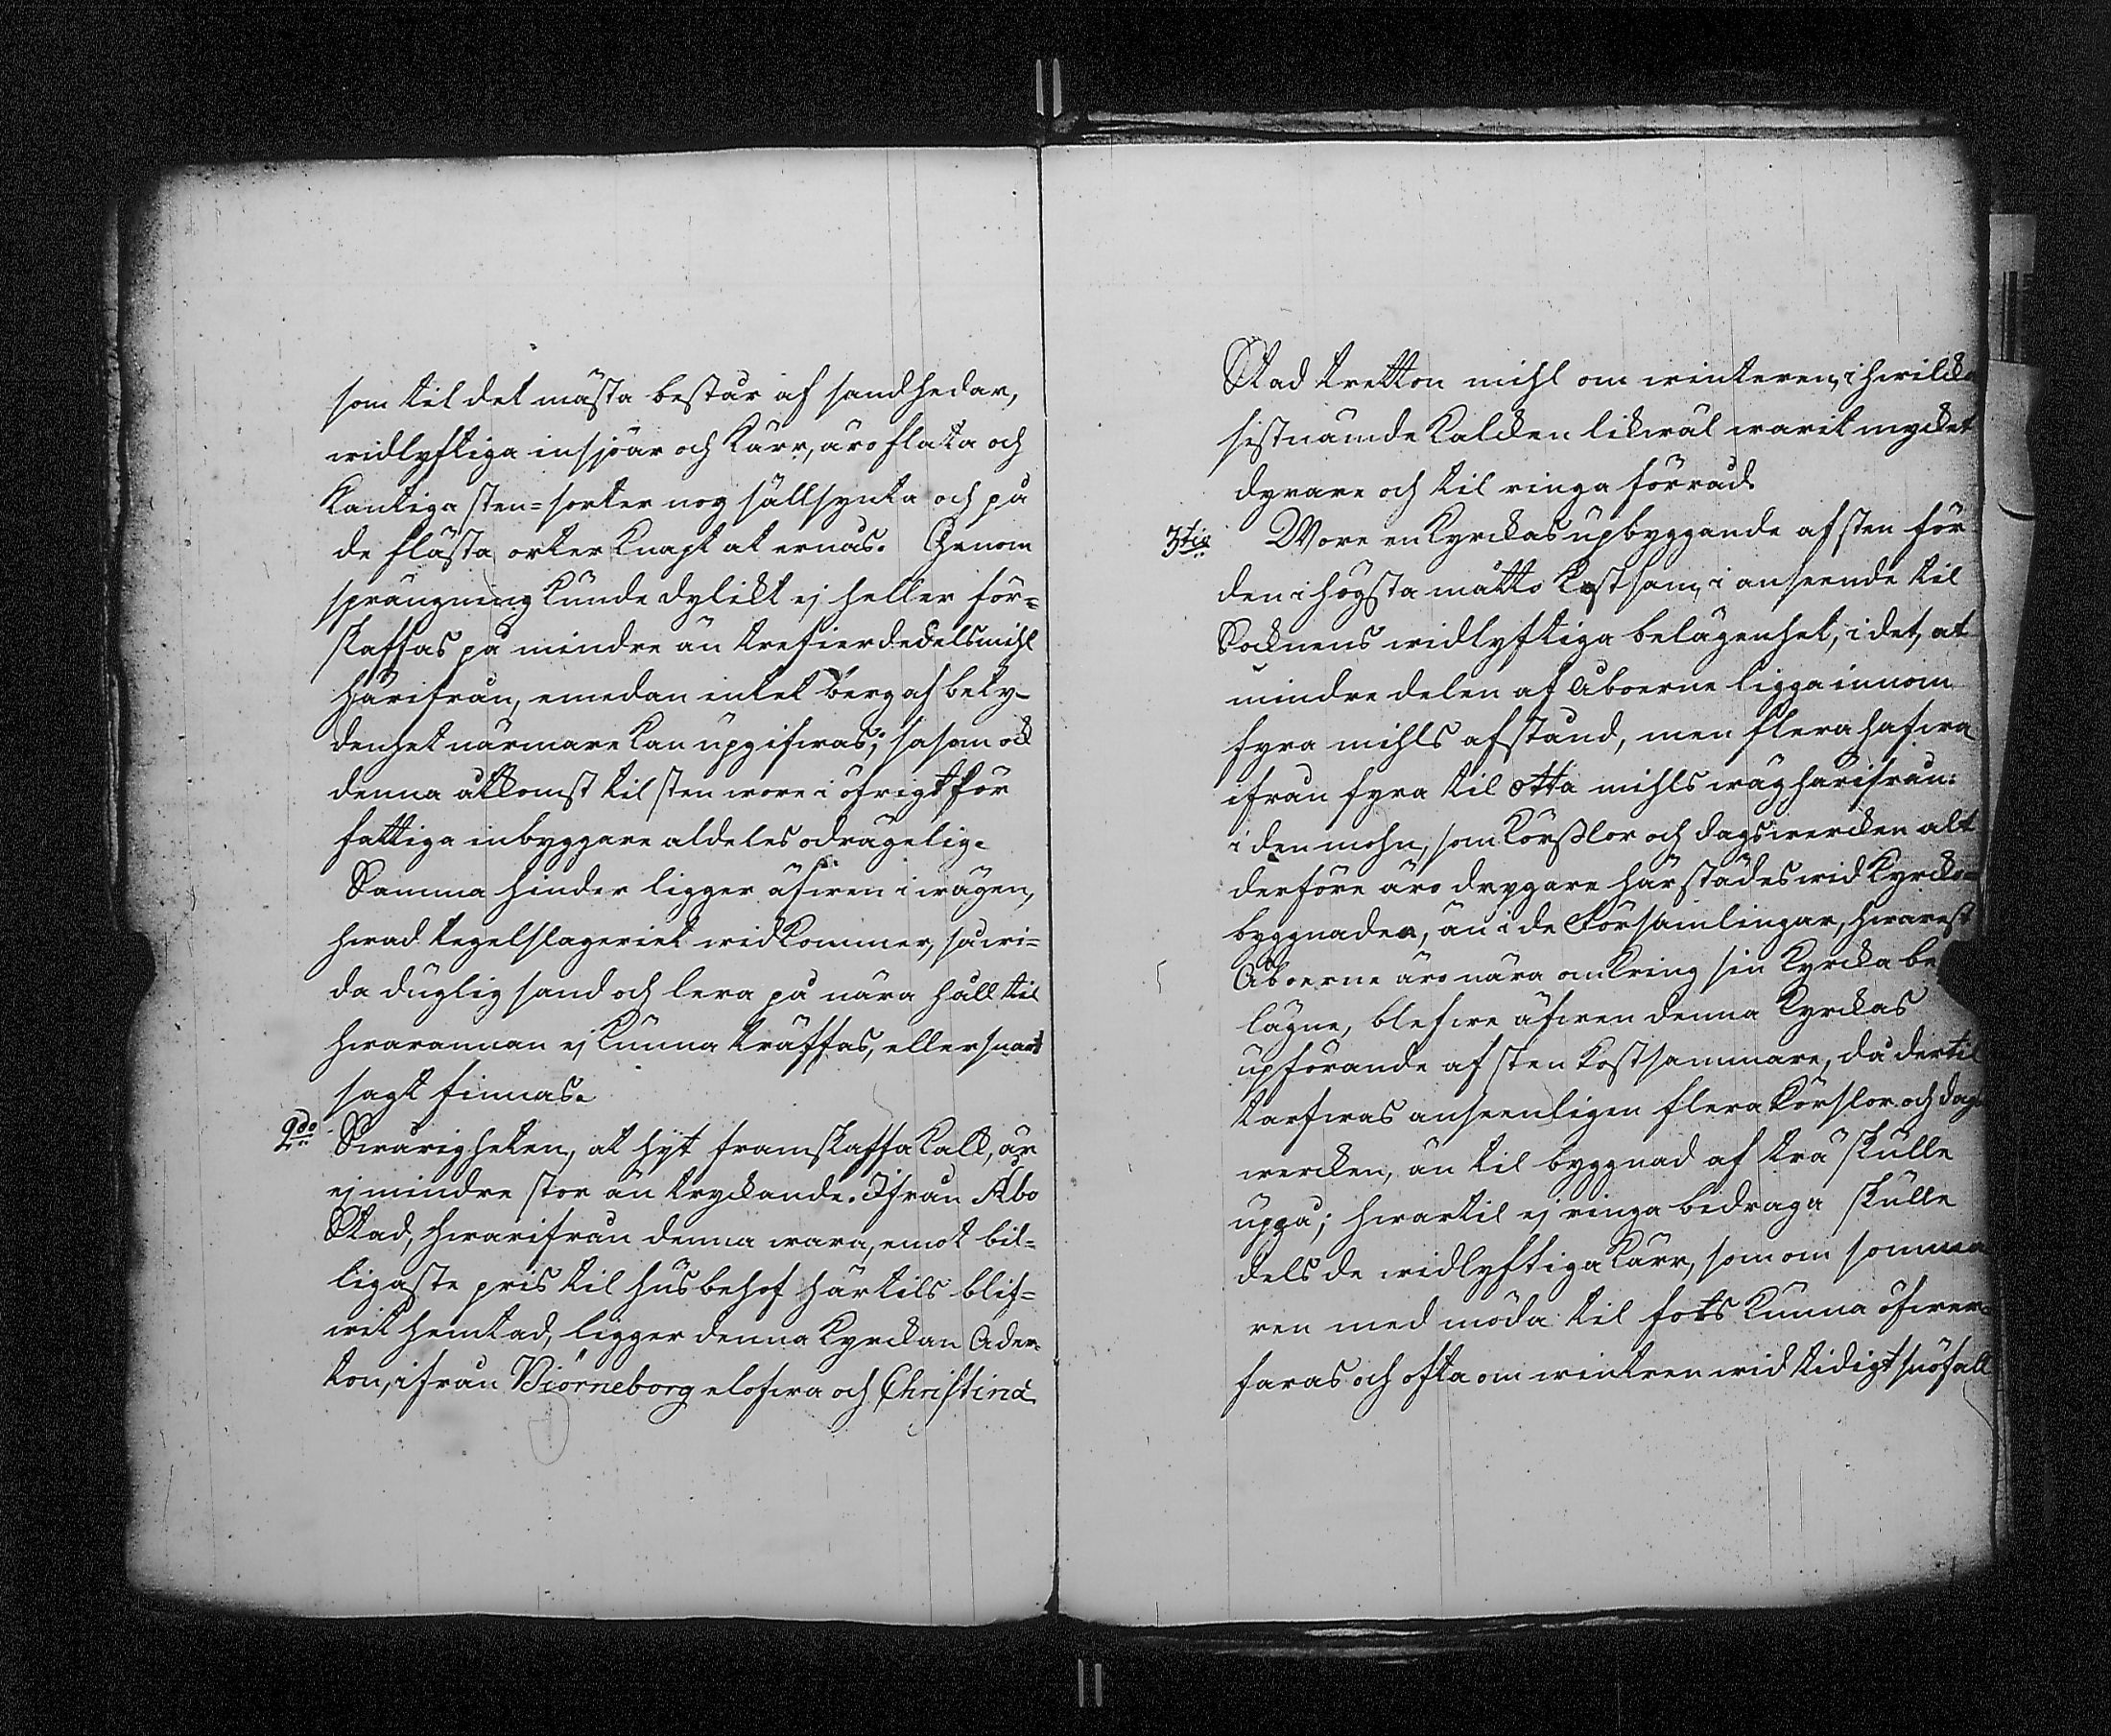 som til det mästa består af sandhedar,
widlyftiga insjöar och Kärr, äro flata och
Kantiga sten=sorter nog sällsynta och på
de flästa orter knapt at ernås. Genom
sprängning kunde dylikt ej heller för=
skaffas på mindre än trefierdedelsmihl
härifrån, emedan intet berg af bety=
denhet närmare kan upgifwas; såsom ock
denna åtkomst til sten wore i öfrigt för
fattiga inbyggare aldeles odrägelig.
Samma hinder ligger äfwen i wägen,
hwad tegelslageriet widkommer, såwi=
da duglig sand och lera på nära håll til
hwarannan ej kunna träffas, eller snart
sagt finnas.
2do Swårigheten, at hijt framskaffa Kalk, är
ej mindre stor än tryckande. Ifrån Åbo
Stad, hwarifrån denna wara, emot bil=
ligaste pris til husbehof härtils blif=
wit hemtad, ligger denna Kyrckan Ader=
ton, ifrån Biörneborg elofwa och Christinæ
Stad tretton mihl om winteren, i hwilcka
sistnämde Kalcken likwäl warit mycket
dyrare och til ringa förråd.
3tio Wore en Kyrckas upbyggande af sten för
den i högsta måtto kostsam, i anseende til
Socknens widlyftiga belägenhet, i det, at
mindre delen af Åboerne ligga innom
fyra mihls afstånd, men flera hafwa
ifrån fyra til otta mihls wäg härifrån:
i den mohn, som körßlor och dagswercken alt
derföre äro drygare härstädes wid Kyrcko=
byggnaden, än i de Församlingar, hwarest
Åboerne äro nära omkring sin Kyrcka be
lägne, blefwe äfwen denna Kyrckas
upförande af sten kostsammare, då dertil
tarfwas anseenligen flera körslor och dags
wercken, än til byggnad af trä skulle
upgå; hwartil ej ringa bidraga skulle
dels de widlyftiga Kärr, som om somma
ren med möda til fots kunna öfwer=
faras och ofta om wintren wid tidigt snöfall